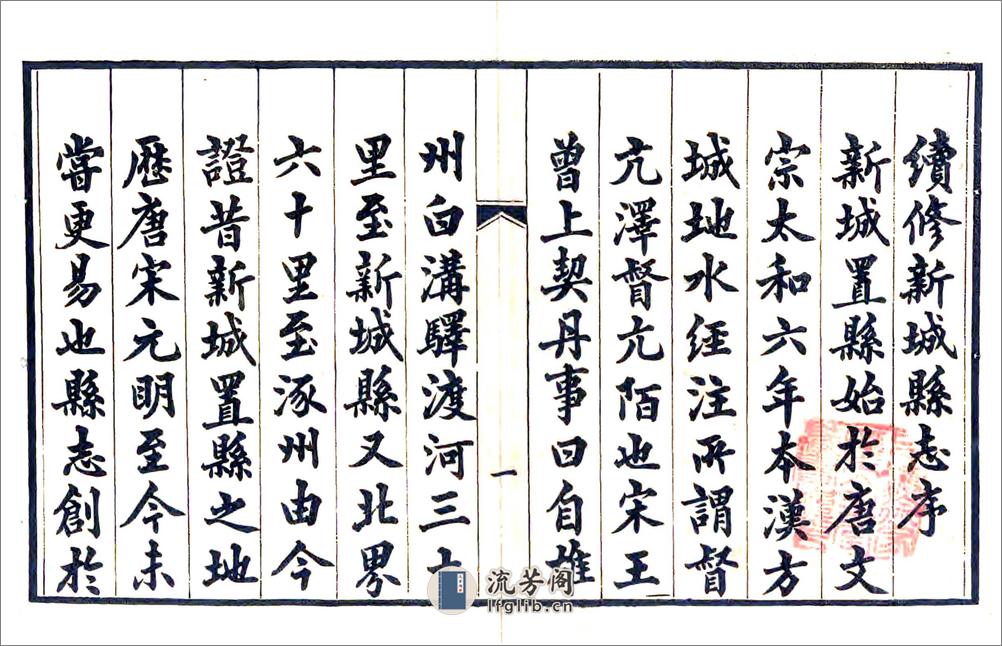 續修新城縣志序
新城置縣始於唐文
宗太和六年本漢方
城地水經注所謂督
亢澤督亢陌也宋王
曾上契丹事曰自雄
州白溝驛渡河三十
里至新城縣又北界
六十里至涿州由今
證昔新城置縣之地
歷唐宋元明至今未
嘗更易也縣志創於
一
流芳阁
lfglib.cn